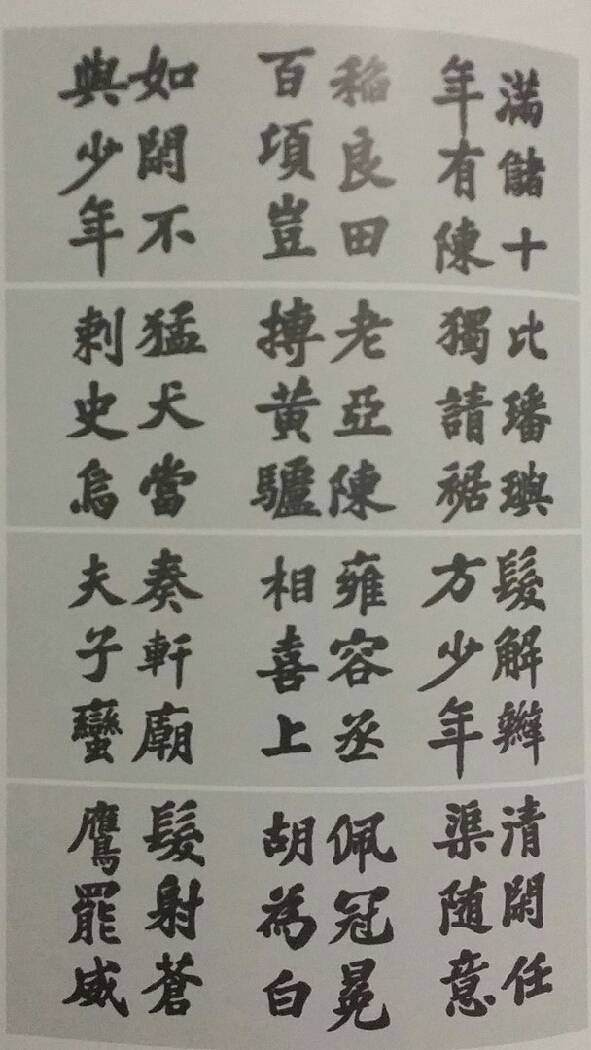 滿儲十
年有陳
稲良田
百項豈
如閑不
與少年
比璠璵
獨請裾
老亞陳
搏黃驢
猛犬當
刺史烏
髮解辮
方少年
雍容丞
相喜上
奏軒廟
夫子蠻
清閑任
渠随意
佩冠冕
胡為白
髮射蒼
鷹罷威